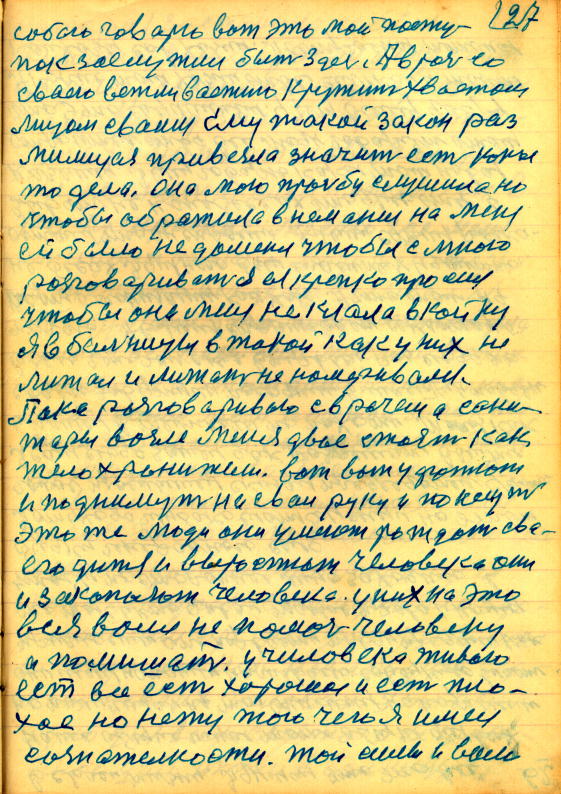 127
собою говарю вот это мой посту-
пок заслужил быт здес. А врач со
сваею вежливастию крутит хвастом
лицом сваим ему такой закон раз
милиция привезла значит ест
то дела. она мою прозбу слушила но
чтобы обратила внемания на меня
ей было не до меня чтобы с мною
розговариват Я ея крепко просил
чтобы она меня не клала в койку
я в балницы в такой как у них не
лижал и лижат не
Пака розговариваю с врачем а сани-
тары возле меня двое стоят как
тело хранители. вот вот
и поднимут на сваи руки и
это же люди они умеют рождат сва-
его дитя и выростют человека они
и закопают человека. у них на это
вся воля не помоч человеку
а помишат. у человека живого
ест всё ест хорошая и ест пло-
хое но нету того чего я имею
сознателности. той силы и воли